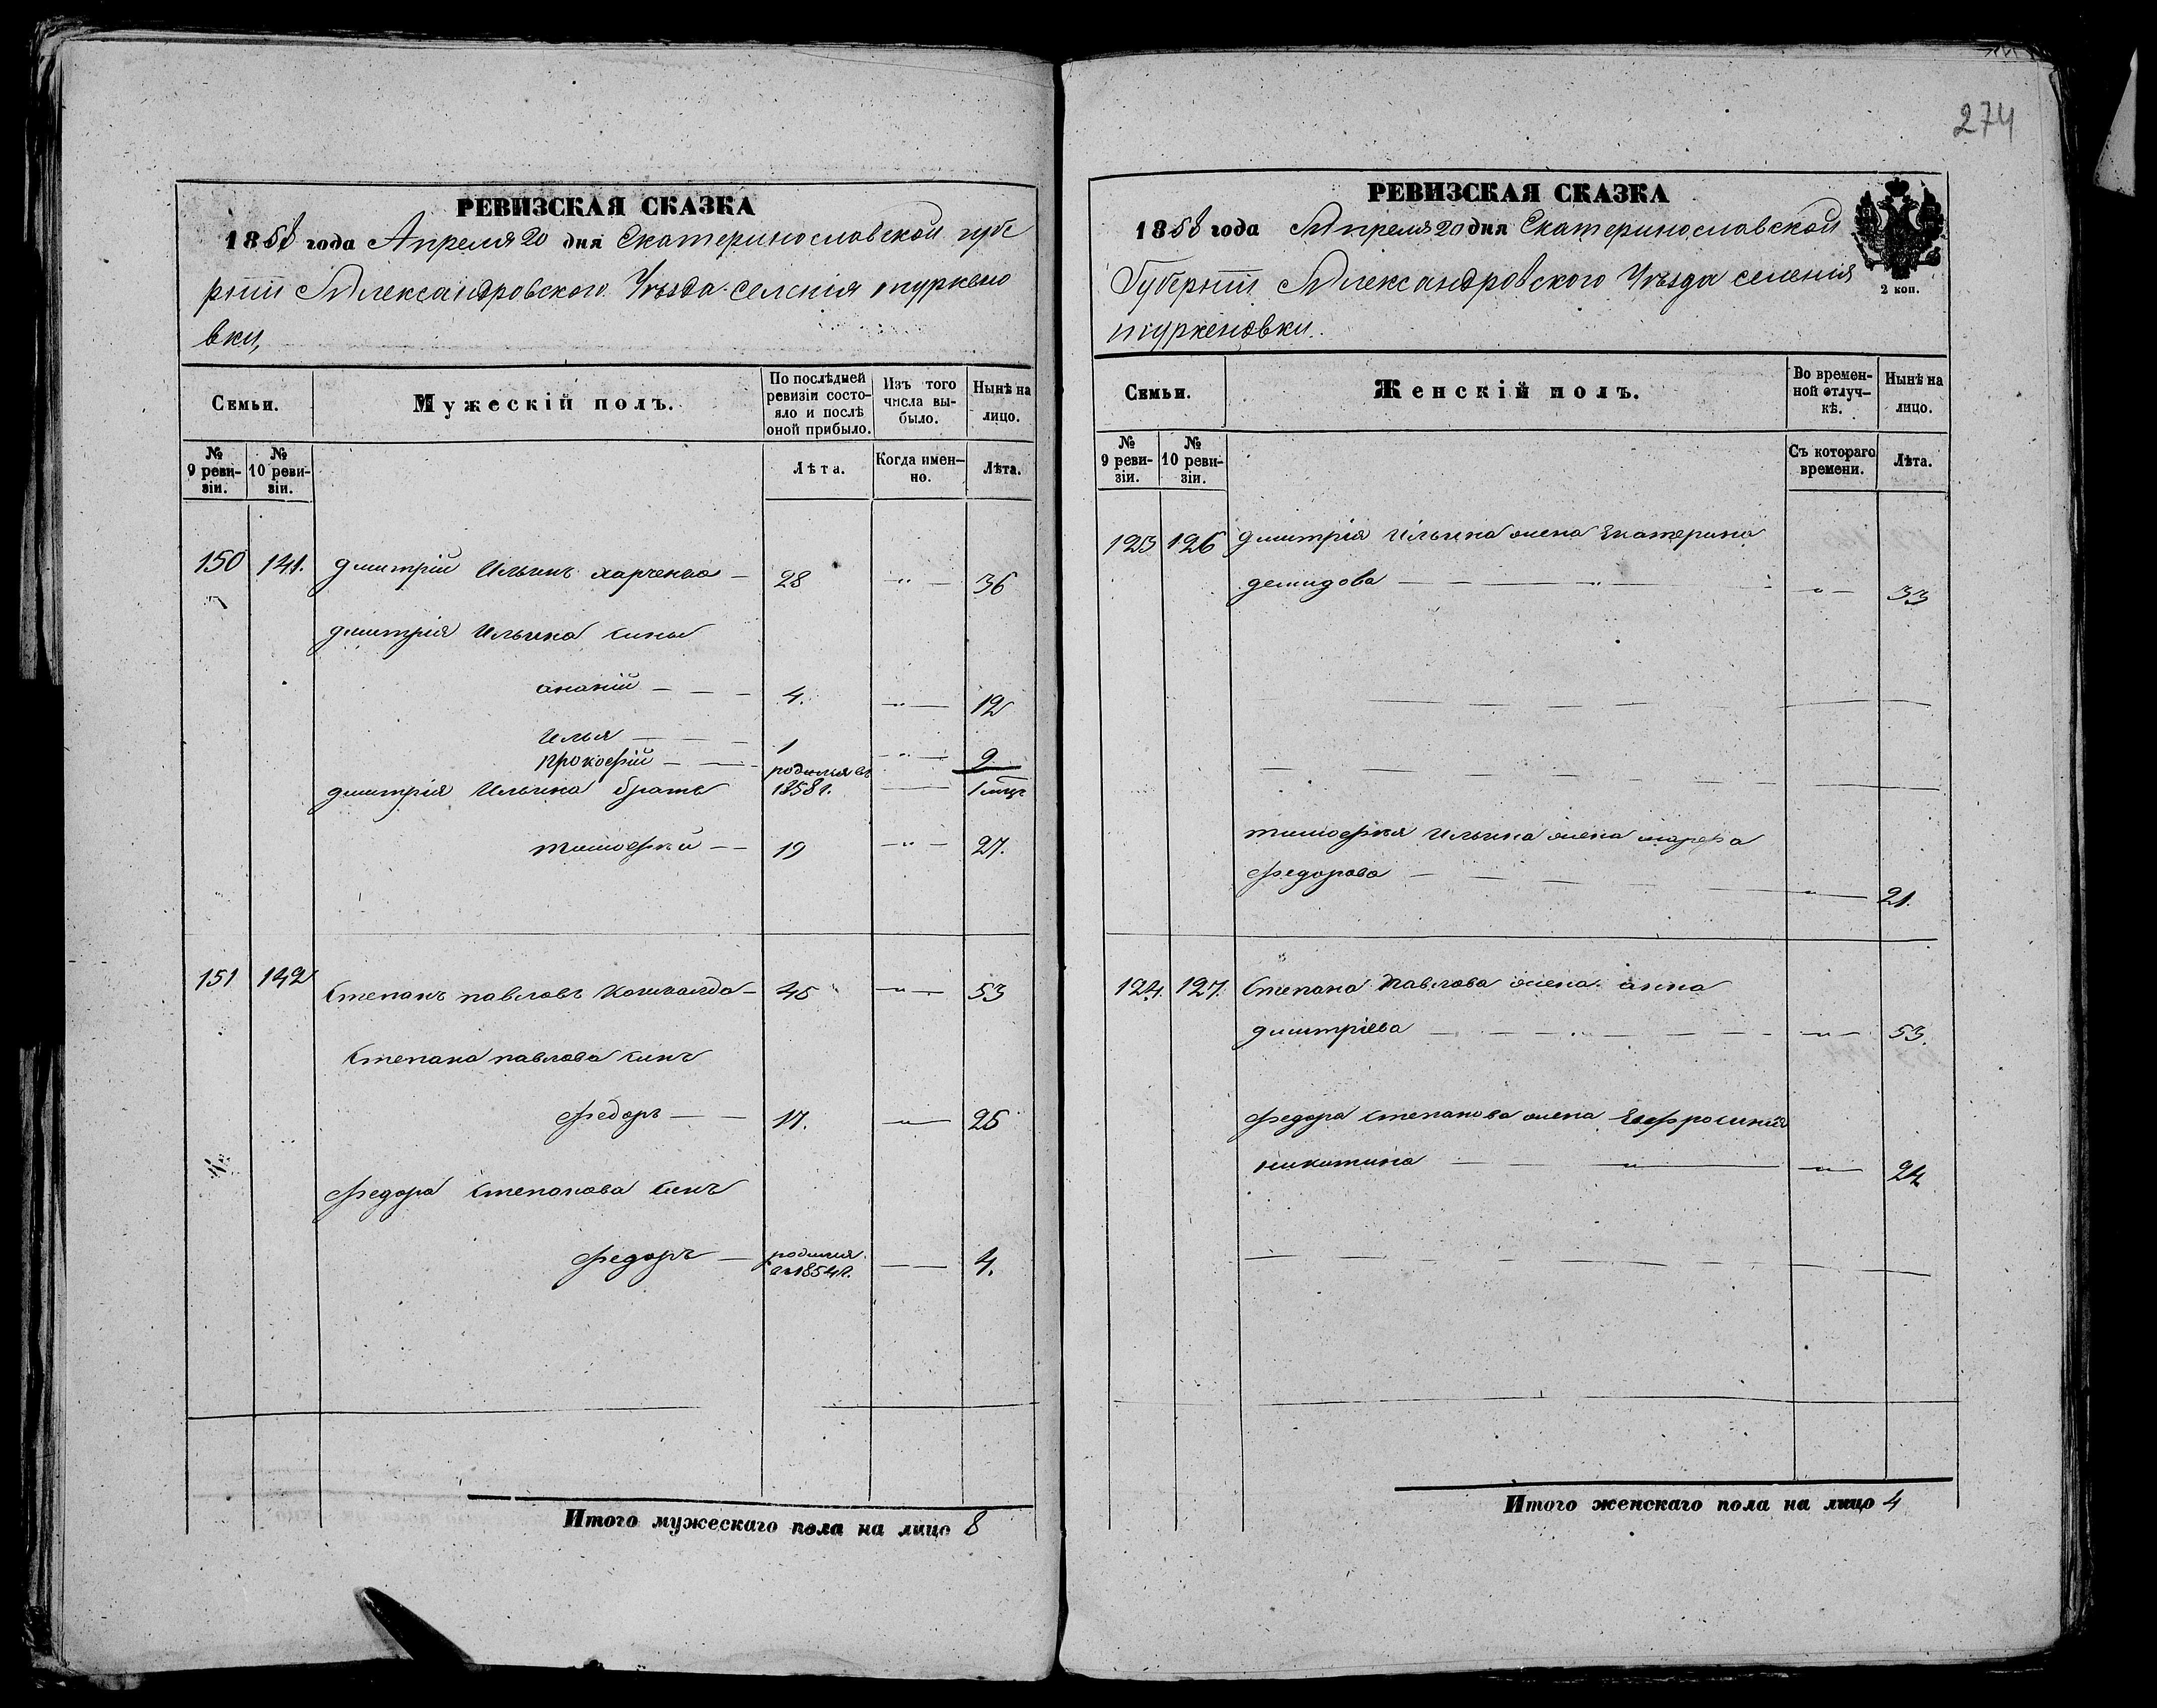 274
РЕВИЗСКАЯ СКАЗКА
1858 года Апреля 20 дня Екатеринославской губе
рніи Александровского Уѣзда селенія туркено
вки,
Семьи.
Мужескій полъ.
По послѣдней ревизіи состояло и послѣ оной прибыло.
Изъ того числа выбыло.
Нынѣ на лицо.
№ 9 ревизіи.
№ 10 ревизіи.
Лѣта.
Когда именно.
Лѣта.
150 141. дмитрій Ильинъ харченко — 28 —„— 36
дмитрія Ильина сины
ананій — — — 4. —„— 12
Илья — — — 1 —„— 9
прокофій — — родился въ 1858 г. — 1 мць
дмитрія Ильина братъ
тимофей — — 19 —„— 27.
151 142 Степанъ павловъ — 45 —„— 53
Степана павлова синъ
федоръ — — 17. —„— 25
федора Степанова синъ
федоръ — родился въ 1854 г. — 4.
Итого мужескаго пола на лицо 8
РЕВИЗСКАЯ СКАЗКА
1858 года Апреля 20 дня Екатеринославской
Губерніи Александровского Уѣзда селенія
туркеновки.
2 коп.
Семьи.
Женскій полъ.
Во временной отлучкѣ.
Нынѣ на лицо.
№ 9 ревизіи.
№ 10 ревизіи.
Съ котораго времени.
Лѣта.
123 126 дмитрія Ильина жена Екатерина
демидова — — —„— 33
тимофея Ильина жена марфа
федорова — — —„— 21.
124. 127. Степана Павлова жена анна
дмитріева — — —„— 53.
федора Степанова жена Ефросинія
никитина — — —„— 24
Итого женскаго пола на лицо 4